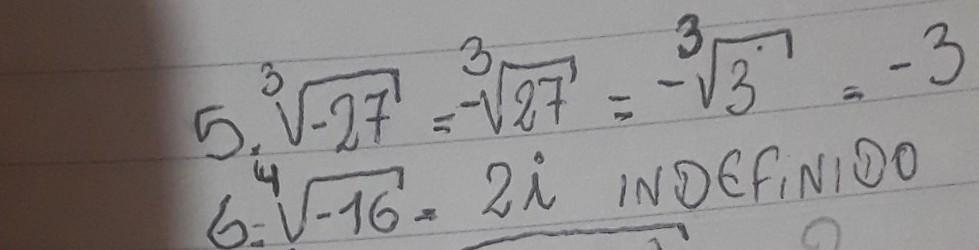 5. ∛-27 = -∛27 = -∛3 = -3
6= ∜-16 = 2i INDEFINIDO